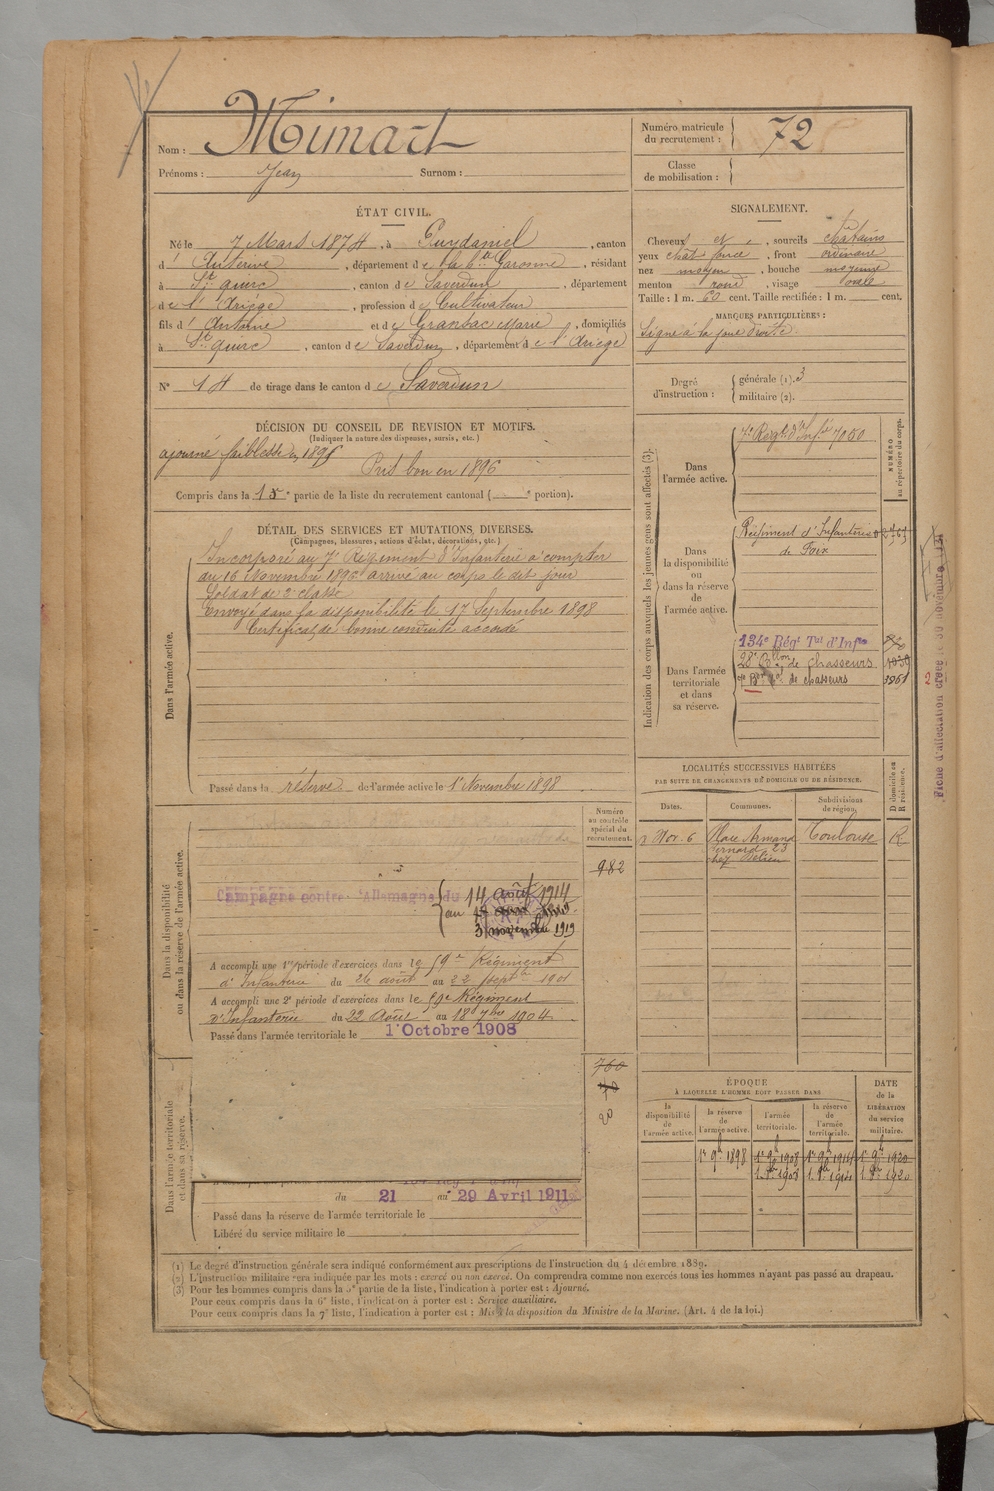 Nom : Minart
Prénoms : Jean Surnom :
Numéro matricule du recrutement : 72
Classe de mobilisation :
ÉTAT CIVIL.
Né le 7 Mars 1874, à Puydaniel, canton
d' Auterive, département de la hte Garonne, résidant
à St Quirc, canton de Saverdun, département
de l'Ariège, profession de Cultivateur
fils d' Antoine et de Gransac Marie, domiciliés
à St Quirc, canton de Saverdun, département de l'Ariège
N° 14 de tirage dans le canton de Saverdun
SIGNALEMENT.
Cheveux et , sourcils châtains
yeux chât foncé, front ordinaire
nez moyen, bouche moyenne
menton rond, visage ovale
Taille : 1 m. 60 cent. Taille rectifiée : 1 m. cent.
MARQUES PARTICULIÈRES :
Signe à la joue droite
Degré d'instruction : générale (1). 3
militaire (2).
DÉCISION DU CONSEIL DE REVISION ET MOTIFS.
(Indiquer la nature des dispenses, sursis, etc.)
ajourné faiblesse en 1895
Pris bon en 1896
Compris dans la 1re partie de la liste du recrutement cantonal ( e portion).
DÉTAIL DES SERVICES ET MUTATIONS DIVERSES.
(Campagnes, blessures, actions d'éclat, décorations, etc.)
Dans l'armée active.
Incorporé au 7e Régiment d'Infanterie à compter
du 16 Novembre 1896 arrivé au corps le dit jour
Soldat de 2e classe
Envoyé dans la disponibilité le 17 Septembre 1898
Certificat de bonne conduite accordé
Passé dans la réserve de l'armée active le 1er Novembre 1898
Indication des corps auxquels les jeunes gens sont affectés (3).
NUMÉRO au répertoire du corps.
Dans l'armée active.
7e Régt d'Infie 7050
Dans la disponibilité ou dans la réserve de l'armée active.
Régiment d'Infanterie
de Foix
Dans l'armée territoriale et dans sa réserve.
134e Régt Tal d'Infie
28e Bllon de chasseurs
de chasseurs
Fiche d'affectation créée le 30 novembre
LOCALITÉS SUCCESSIVES HABITÉES
PAR SUITE DE CHANGEMENTS DE DOMICILE OU DE RÉSIDENCE.
Dates. Communes. Subdivisions de région. D domicile ou R résidence.
Nov. 6 Place Armand Toulouse R
Bernard 23
chez
Dans la disponibilité ou dans la réserve de l'armée active.
Numéro au contrôle spécial du recrutement.
982
Campagne contre l'Allemagne du 14 août 1914
au
3 novembre 1919
A accompli une 1re période d'exercices dans le 59e Régiment
d'Infanterie du 26 août au 22 septbre 1901
A accompli une 2e période d'exercices dans le 59e Régiment
d'Infanterie du 22 Août au 18 7bre 1904
Passé dans l'armée territoriale le 1er Octobre 1908
760
20
Dans l'armée territoriale et dans sa réserve.
du 21 au 29 Avril 1911
Passé dans la réserve de l'armée territoriale le
Libéré du service militaire le
ÉPOQUE
À LAQUELLE L'HOMME DOIT PASSER DANS
DATE de la LIBÉRATION du service militaire.
la disponibilité de l'armée active. la réserve de l'armée active. l'armée territoriale. la réserve de l'armée territoriale.
1er 9bre 1898 1er 9bre 1908 1er 9bre 1914 1er 9bre 1920
1. 8bre 1908 1. 8bre 1914 1. 8bre 1920
(1) Le degré d'instruction générale sera indiqué conformément aux prescriptions de l'instruction du 4 décembre 1889.
(2) L'instruction militaire sera indiquée par les mots : exercé ou non exercé. On comprendra comme non exercés tous les hommes n'ayant pas passé au drapeau.
(3) Pour les hommes compris dans la 5e partie de la liste, l'indication à porter est : Ajourné.
Pour ceux compris dans la 6e liste, l'indication à porter est : Service auxiliaire.
Pour ceux compris dans la 7e liste, l'indication à porter est : Mis à la disposition du Ministre de la Marine. (Art. 4 de la loi.)